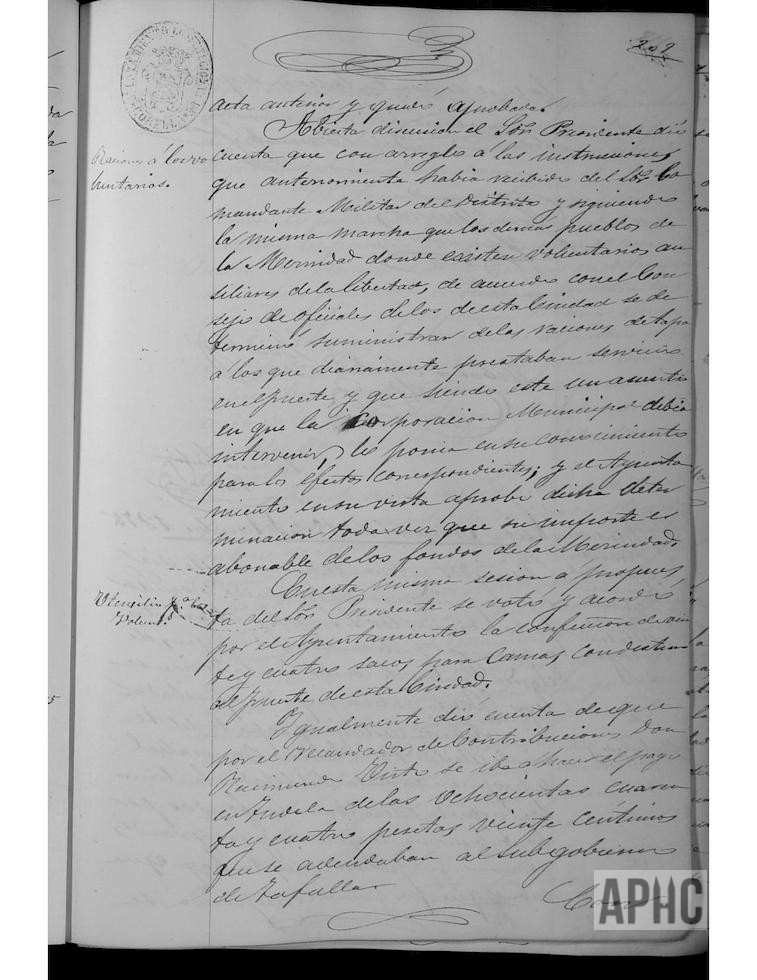 202
acta anterior y quedó aprobada.
Abierta discusion el Sor. Presidente dió
Raciones á los vo
luntarios.
cuenta que con arreglo á las instrucciones
que anteriormente habia recibido del Sor. Co
mandante Militar del Distrito y siguiendo
la misma marcha que los demas pueblos de
la Merindad donde existen voluntarios au
siliares de la libertad, de acuerdo con el Con
sejo de oficiales de los de esta Ciudad se de
terminó suministrar de las raciones de tapa
á los que diariamente prestaban servicio
en el fuerte, y que siendo este un asunto
en que la Corporacion Municipal debia
intervenir, lo ponia en su conocimiento
para los efectos correspondientes; y el Ayunta
miento en su vista aprobó dicha deter
minacion toda vez que su importe es
abonable de los fondos de la Merindad.
En esta misma sesion á propues
Utensilio pa. los
Volunts.
ta del Sor. Presidente se votó y acordó
por el Ayuntamiento la confeccion de vein
te y cuatro sacos para Camas con destino
al fuerte de esta Ciudad.
Igualmente dió cuenta de que
por el Recaudador de Contribuciones Don
Raimundo se iba á hacer el pago
en Tudela de las Ochocientas cuaren
ta y cuatro pesetas veinte céntimos
que se adeudaban al Subgobierno
de Tafalla.
APHC